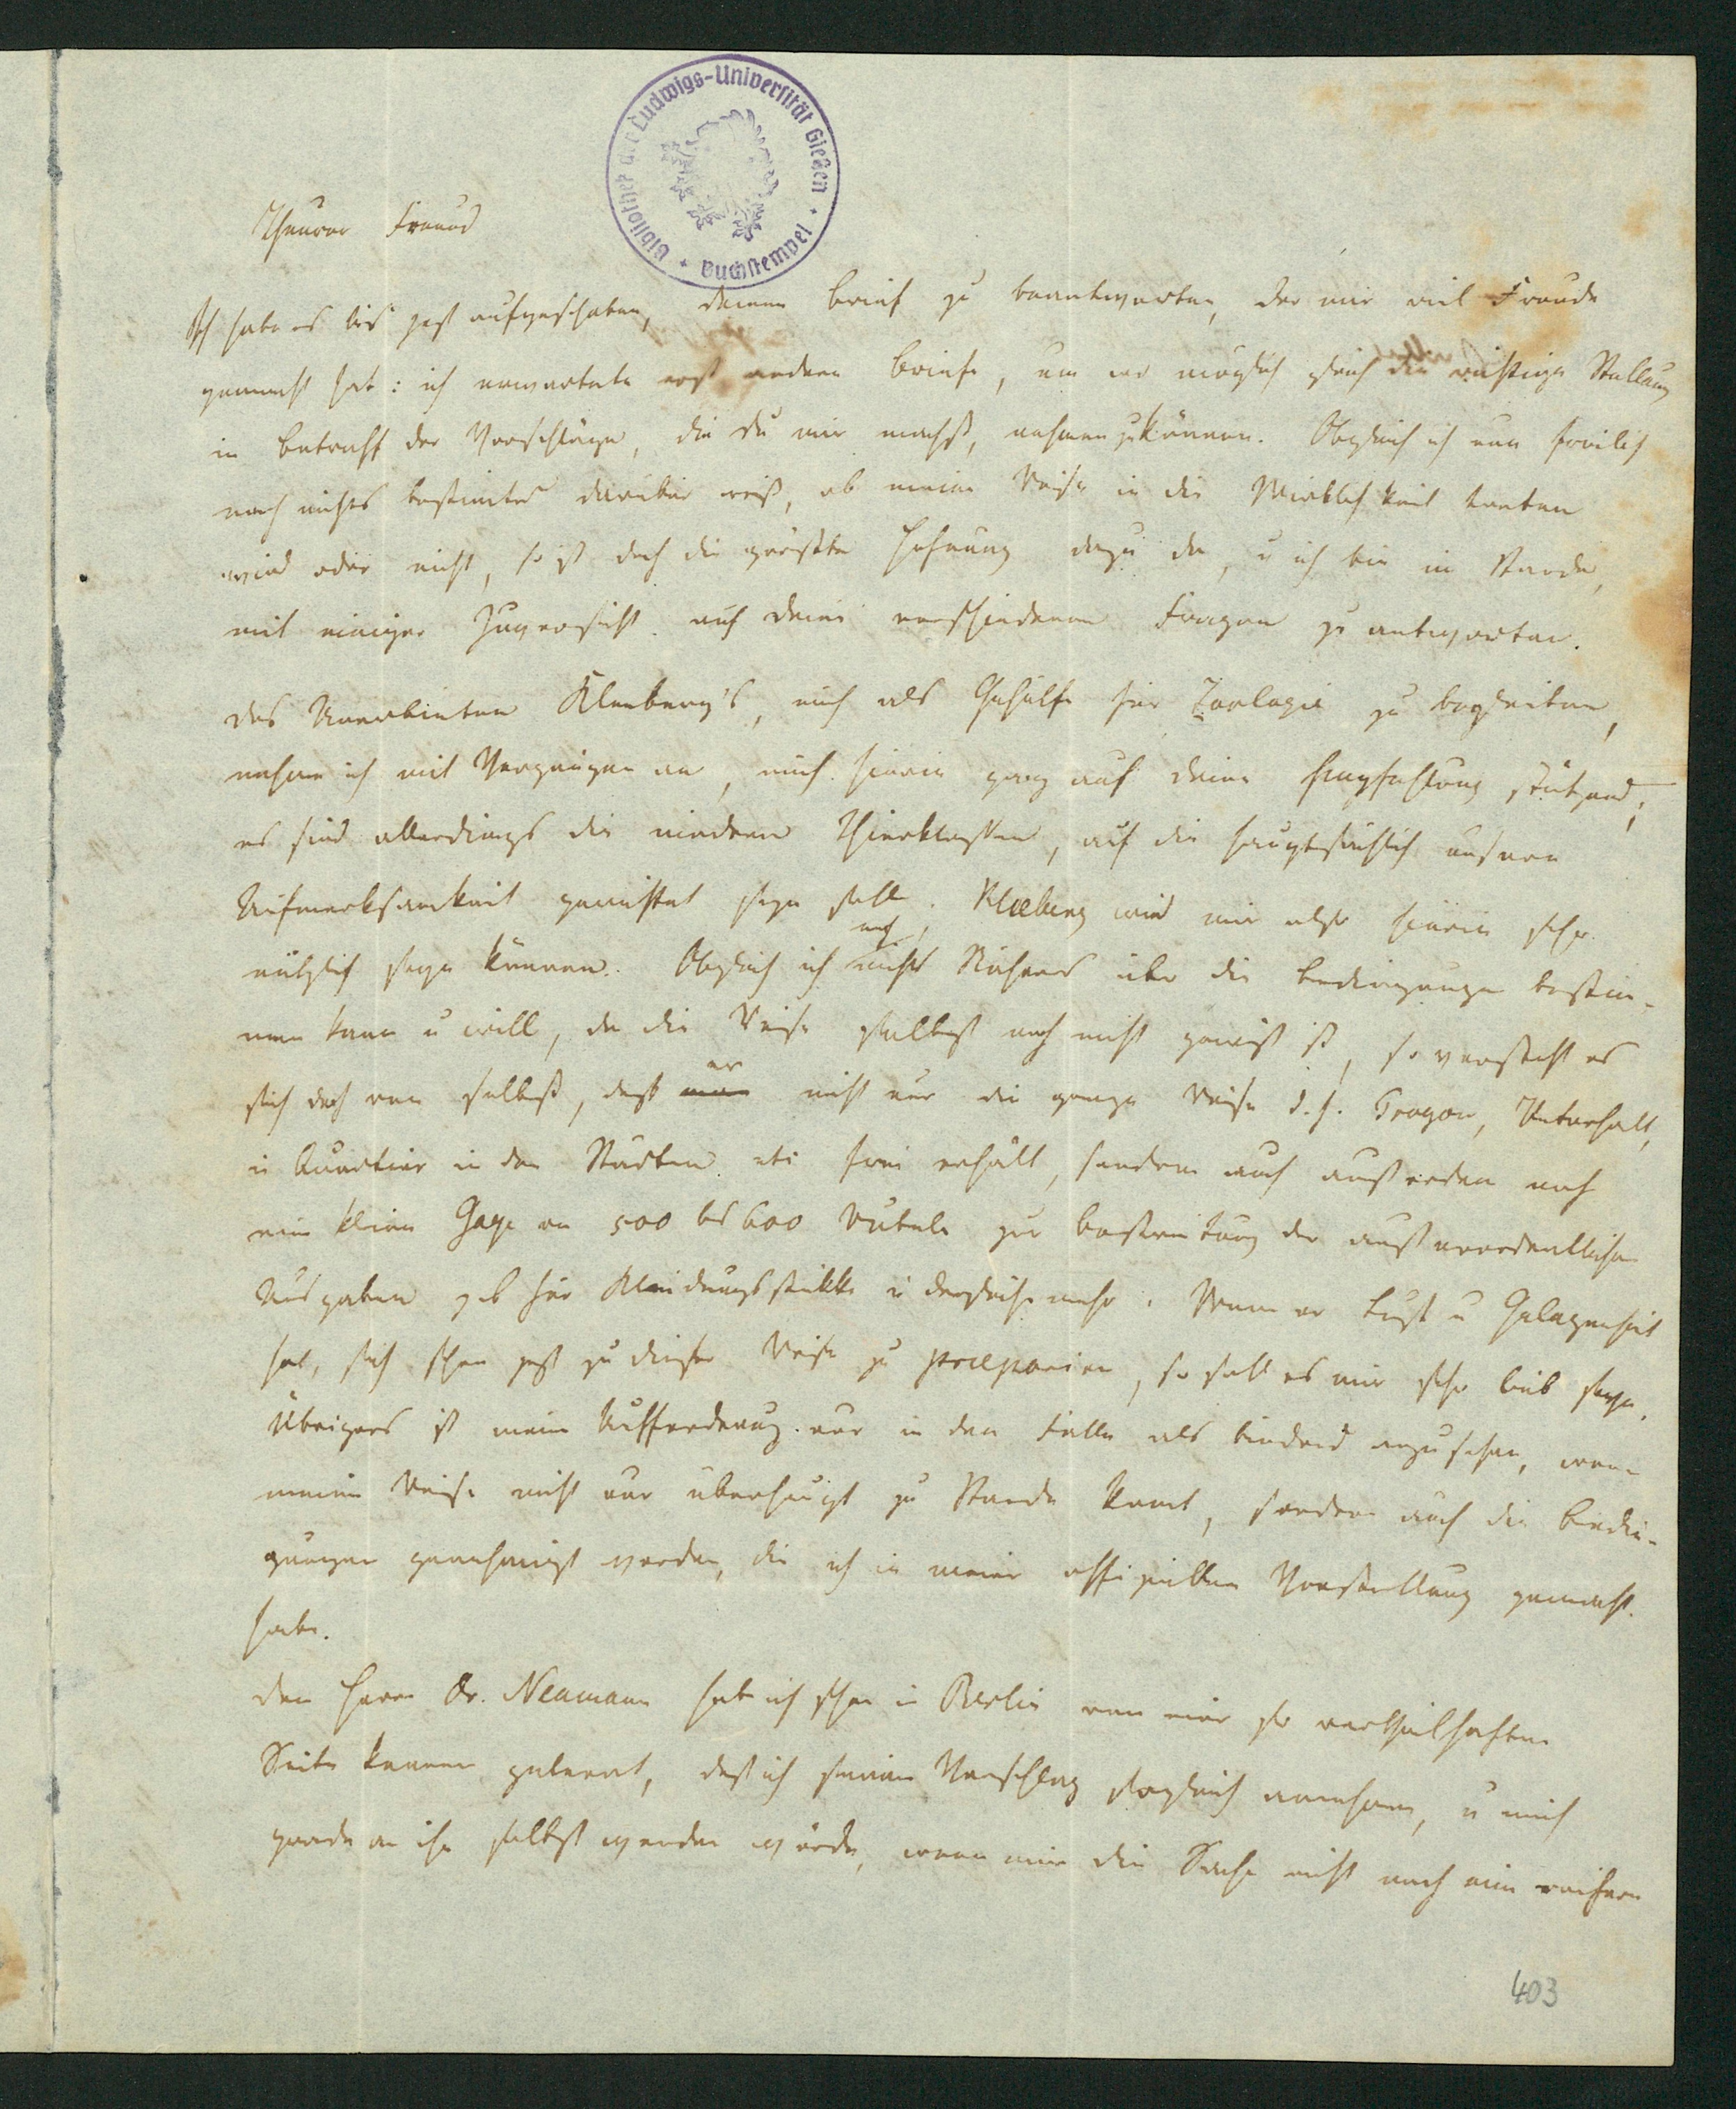 Bibliothek der Ludwigs-Universität Gießen
Buchstempel
Theurer Freund
Ich habe es bis jezt aufgeschoben, deinen Brief zu beantworten, der mir viel Freude
gemacht hat: ich erwartete erst andere Briefe, um wo möglich gleich die richtige Stellung
in Betreff der Vorschläge, die du mir machst, nehmen zu können. Obgleich ich nun freilich
noch nichts bestimtes darüber weiß, ob meine Reise in die Wirklichkeit treten
wird oder nicht, so ist doch die größte Hofnung dazu da, u ich bin im Stande,
mit einiger Zuversicht auf deine verschiedenen Fragen zu antworten.
Das Anerbieten Kleeberg's, mich als Gehülfe für Zoologie zu begleiten,
nehme ich mit Vergnügen an, mich hierin ganz auf deine Empfehlung stützend;
es sind allerdings die niederen Thierklassen, auf die hauptsächlich unsere
Aufmerksamkeit gerichtet seyn soll. Kleeberg wird mir also hierin sehr
nützlich seyn können. Obgleich ich noch nichts Näheres über die Bedingungen bestim-
men kann u will, da die Reise selbst noch nicht gewiß ist, so versteht es
sich doch von selbst, daß er nicht nur die ganze Reise d. h. Progon, Unterhalt,
u Quartier in den Städten etc frei erhält, sondern auch außerdem noch
eine kleine Gage von 500 bis 600 Rubeln zur Bestreitung der außerordentlichen
Ausgaben z b für Kleidungsstükke u dergleichen mehr. Wenn er Lust u Gelegenheit
hat, sich schon jezt zu dieser Reise zu praeparieren, so soll es mir sehr lieb seyn.
Übrigens ist meine Aufforderung nur in dem Falle als bindend anzusehen, wenn
meine Reise nicht nur überhaupt zu Stande komt, sondern auch die Bedin-
gungen genehmigt werden, die ich in meiner offiziellen Vorstellung gemacht
habe.
Den Herrn Dr. Neumann hab ich schon in Berlin von einer so vortheilhaften
Seite kennen gelernt, daß ich seinen Vorschlag sogleich annehmen, u mich
gerade an ihn selbst wenden würde, wenn mir die Sache nicht noch eine reifere
403